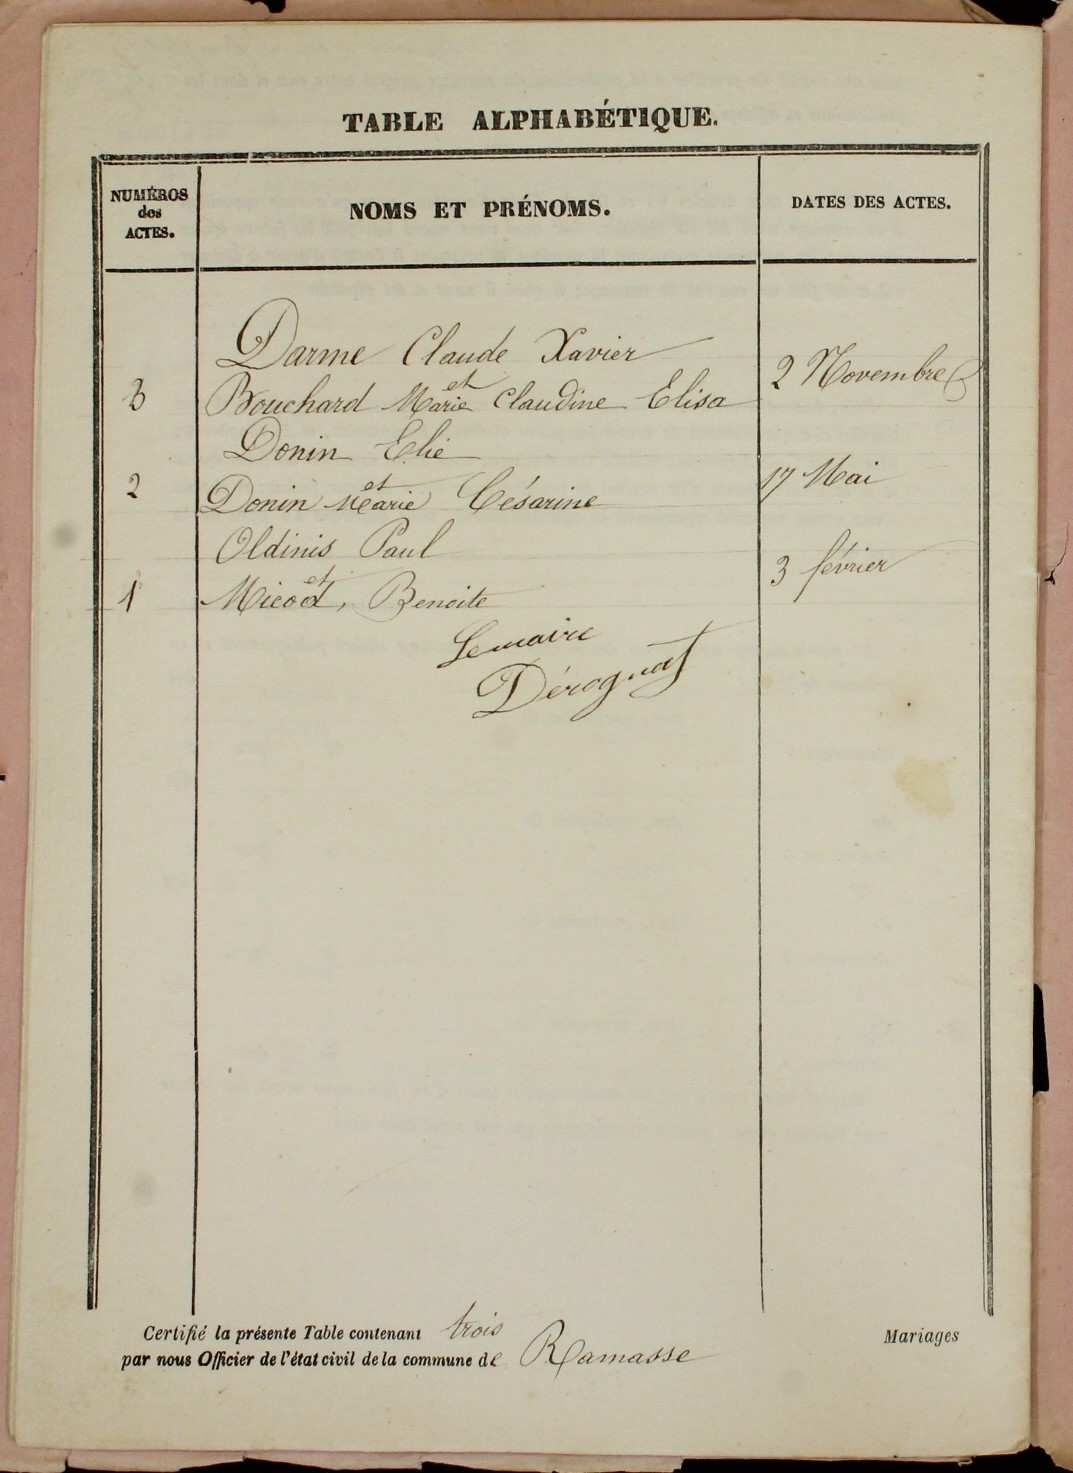 TABLE ALPHABÉTIQUE.
NUMÉROS des ACTES.
NOMS ET PRÉNOMS.
DATES DES ACTES.
Darme Claude Xavier
et
3 Bouchard Marie Claudine Elisa 2 Novembre
Donin Elie
et
2 Donin Marie Césarine 17 Mai
Oldinis Paul
et
1 Micod, Benoite 3 février
Le maire
Dérognat
Certifié la présente Table contenant trois Mariages
par nous Officier de l'état civil de la commune de Ramasse